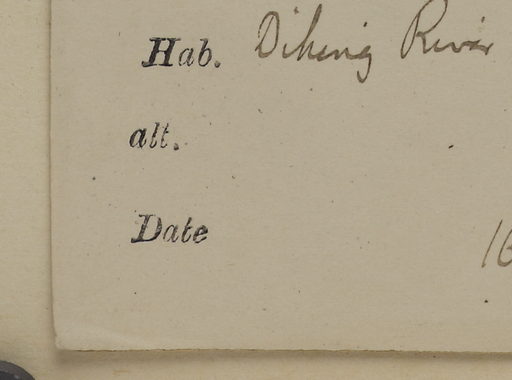 Hab. Dihing River
alt.
Date 16